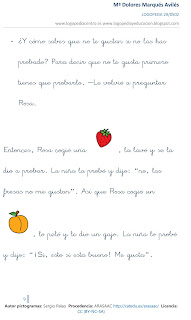 Mª Dolores Marqués Avilés
LOGOPEDA 29/0620
www.logopedicentro.es www.logopedayeducacion.blogspot.com
- ¿Y cómo sabes que no te gustan si no las has
probado? Para decir que no te gusta primero
tienes que probarlo. –Le volvió a preguntar
Rosa.
Entonces, Rosa cogió una , la lavó y se la
dió a probar. La niña la probó y dijo: "no, las
fresas no me gustan". Así que Rosa cogió un
, lo peló y le dio un gajo. La niña lo probó
y dijo: "¡Sí, este si esta bueno! Me gusta".
9
Autor pictogramas: Sergio Palao Procedencia: ARASAAC http://catedu.es/arasaac/ Licencia:
CC (BY-NC-SA)